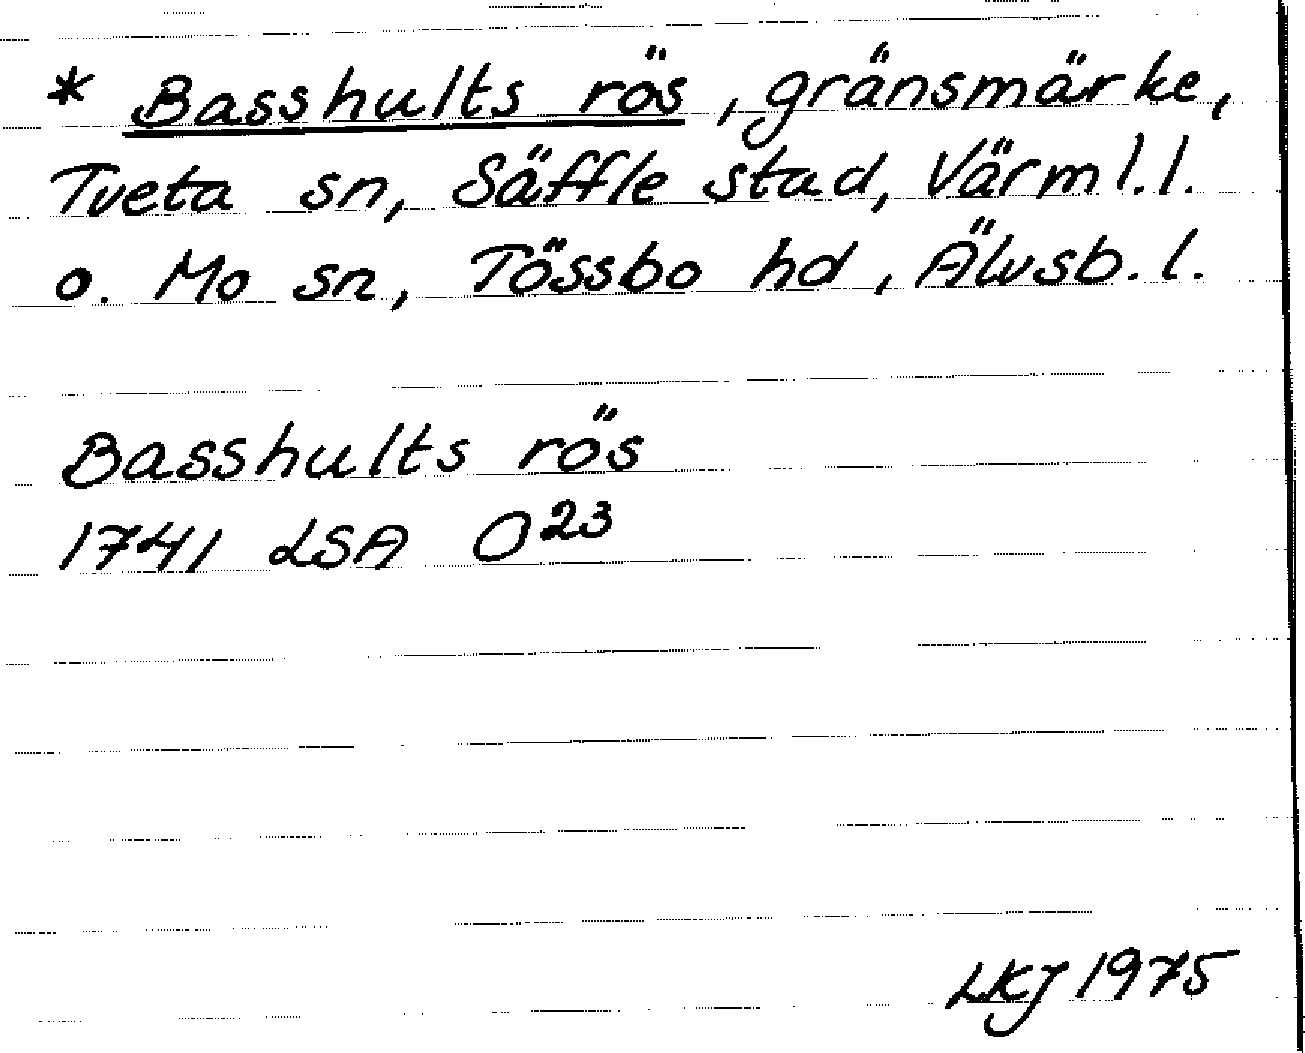 * Basshults rös, gränsmärke,
Tveta sn, Säffle stad, Värml.l.
o. Mo sn, Tössbo hd, Älvsb.l.
Basshults rös
1741 LSA O²³
LKJ 1975